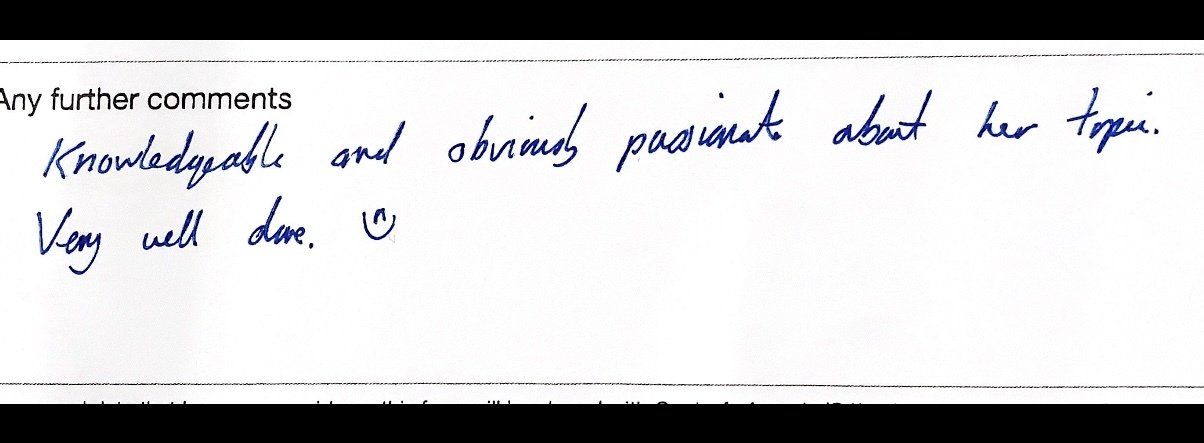 Any further comments
Knowledgeable and obviously passionate about her topic.
Very well done.